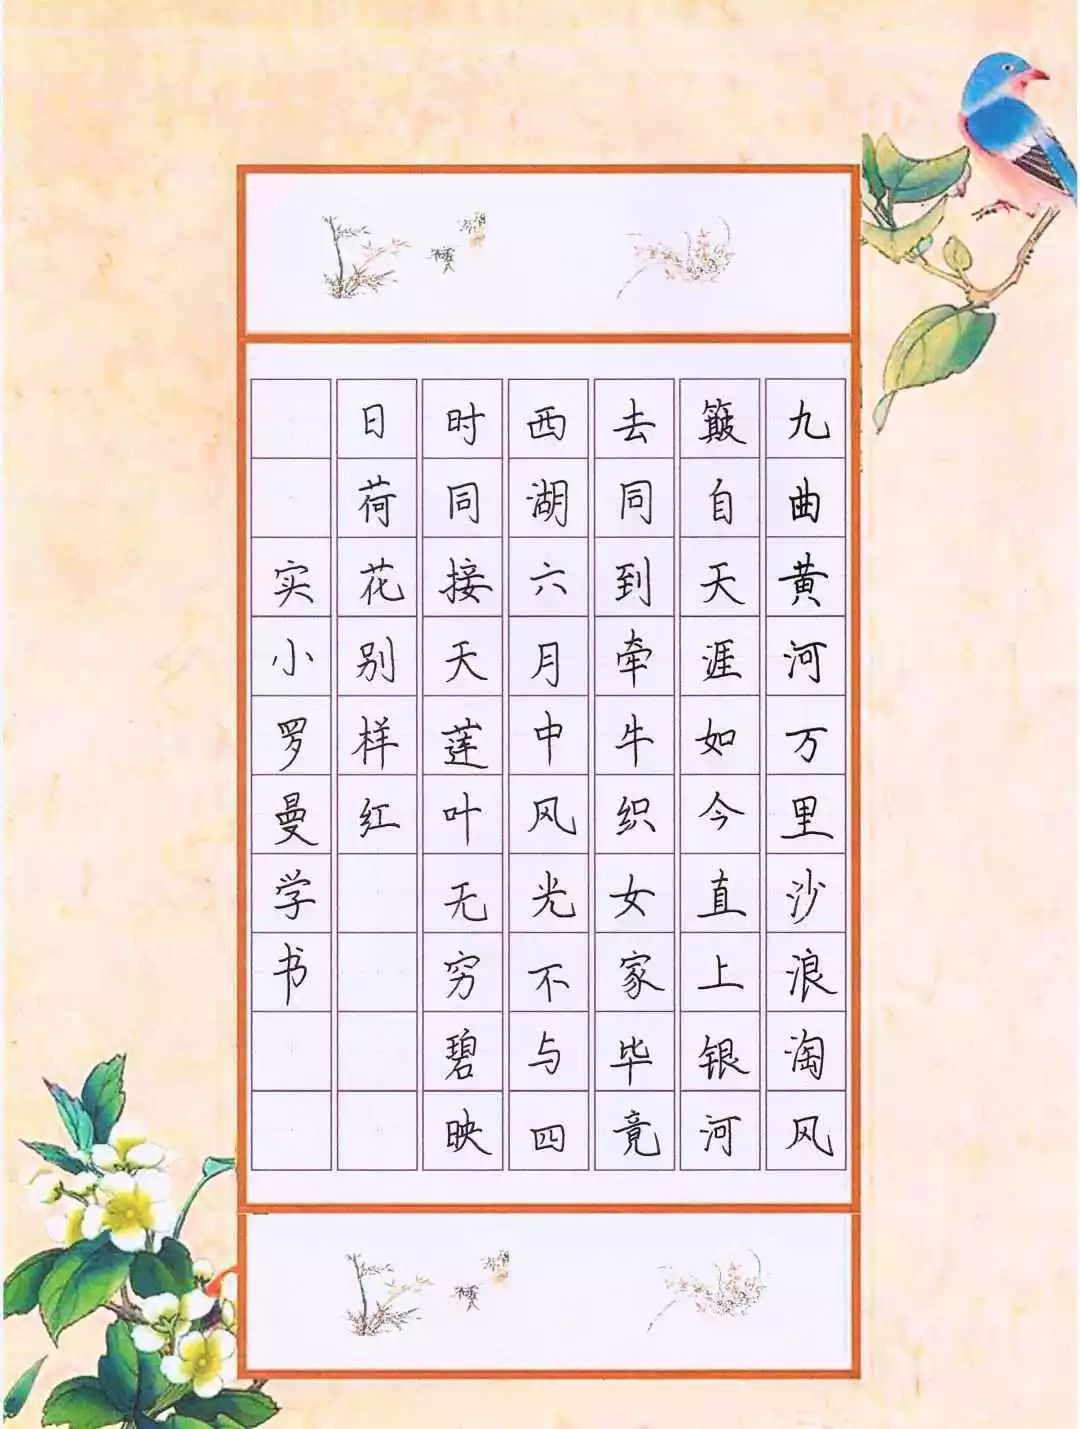 九曲黄河万里沙浪淘风
簸自天涯如今直上银河
去同到牵牛织女家毕竟
西湖六月中风光不与四
时同接天莲叶无穷碧映
日荷花别样红
实小罗曼学书